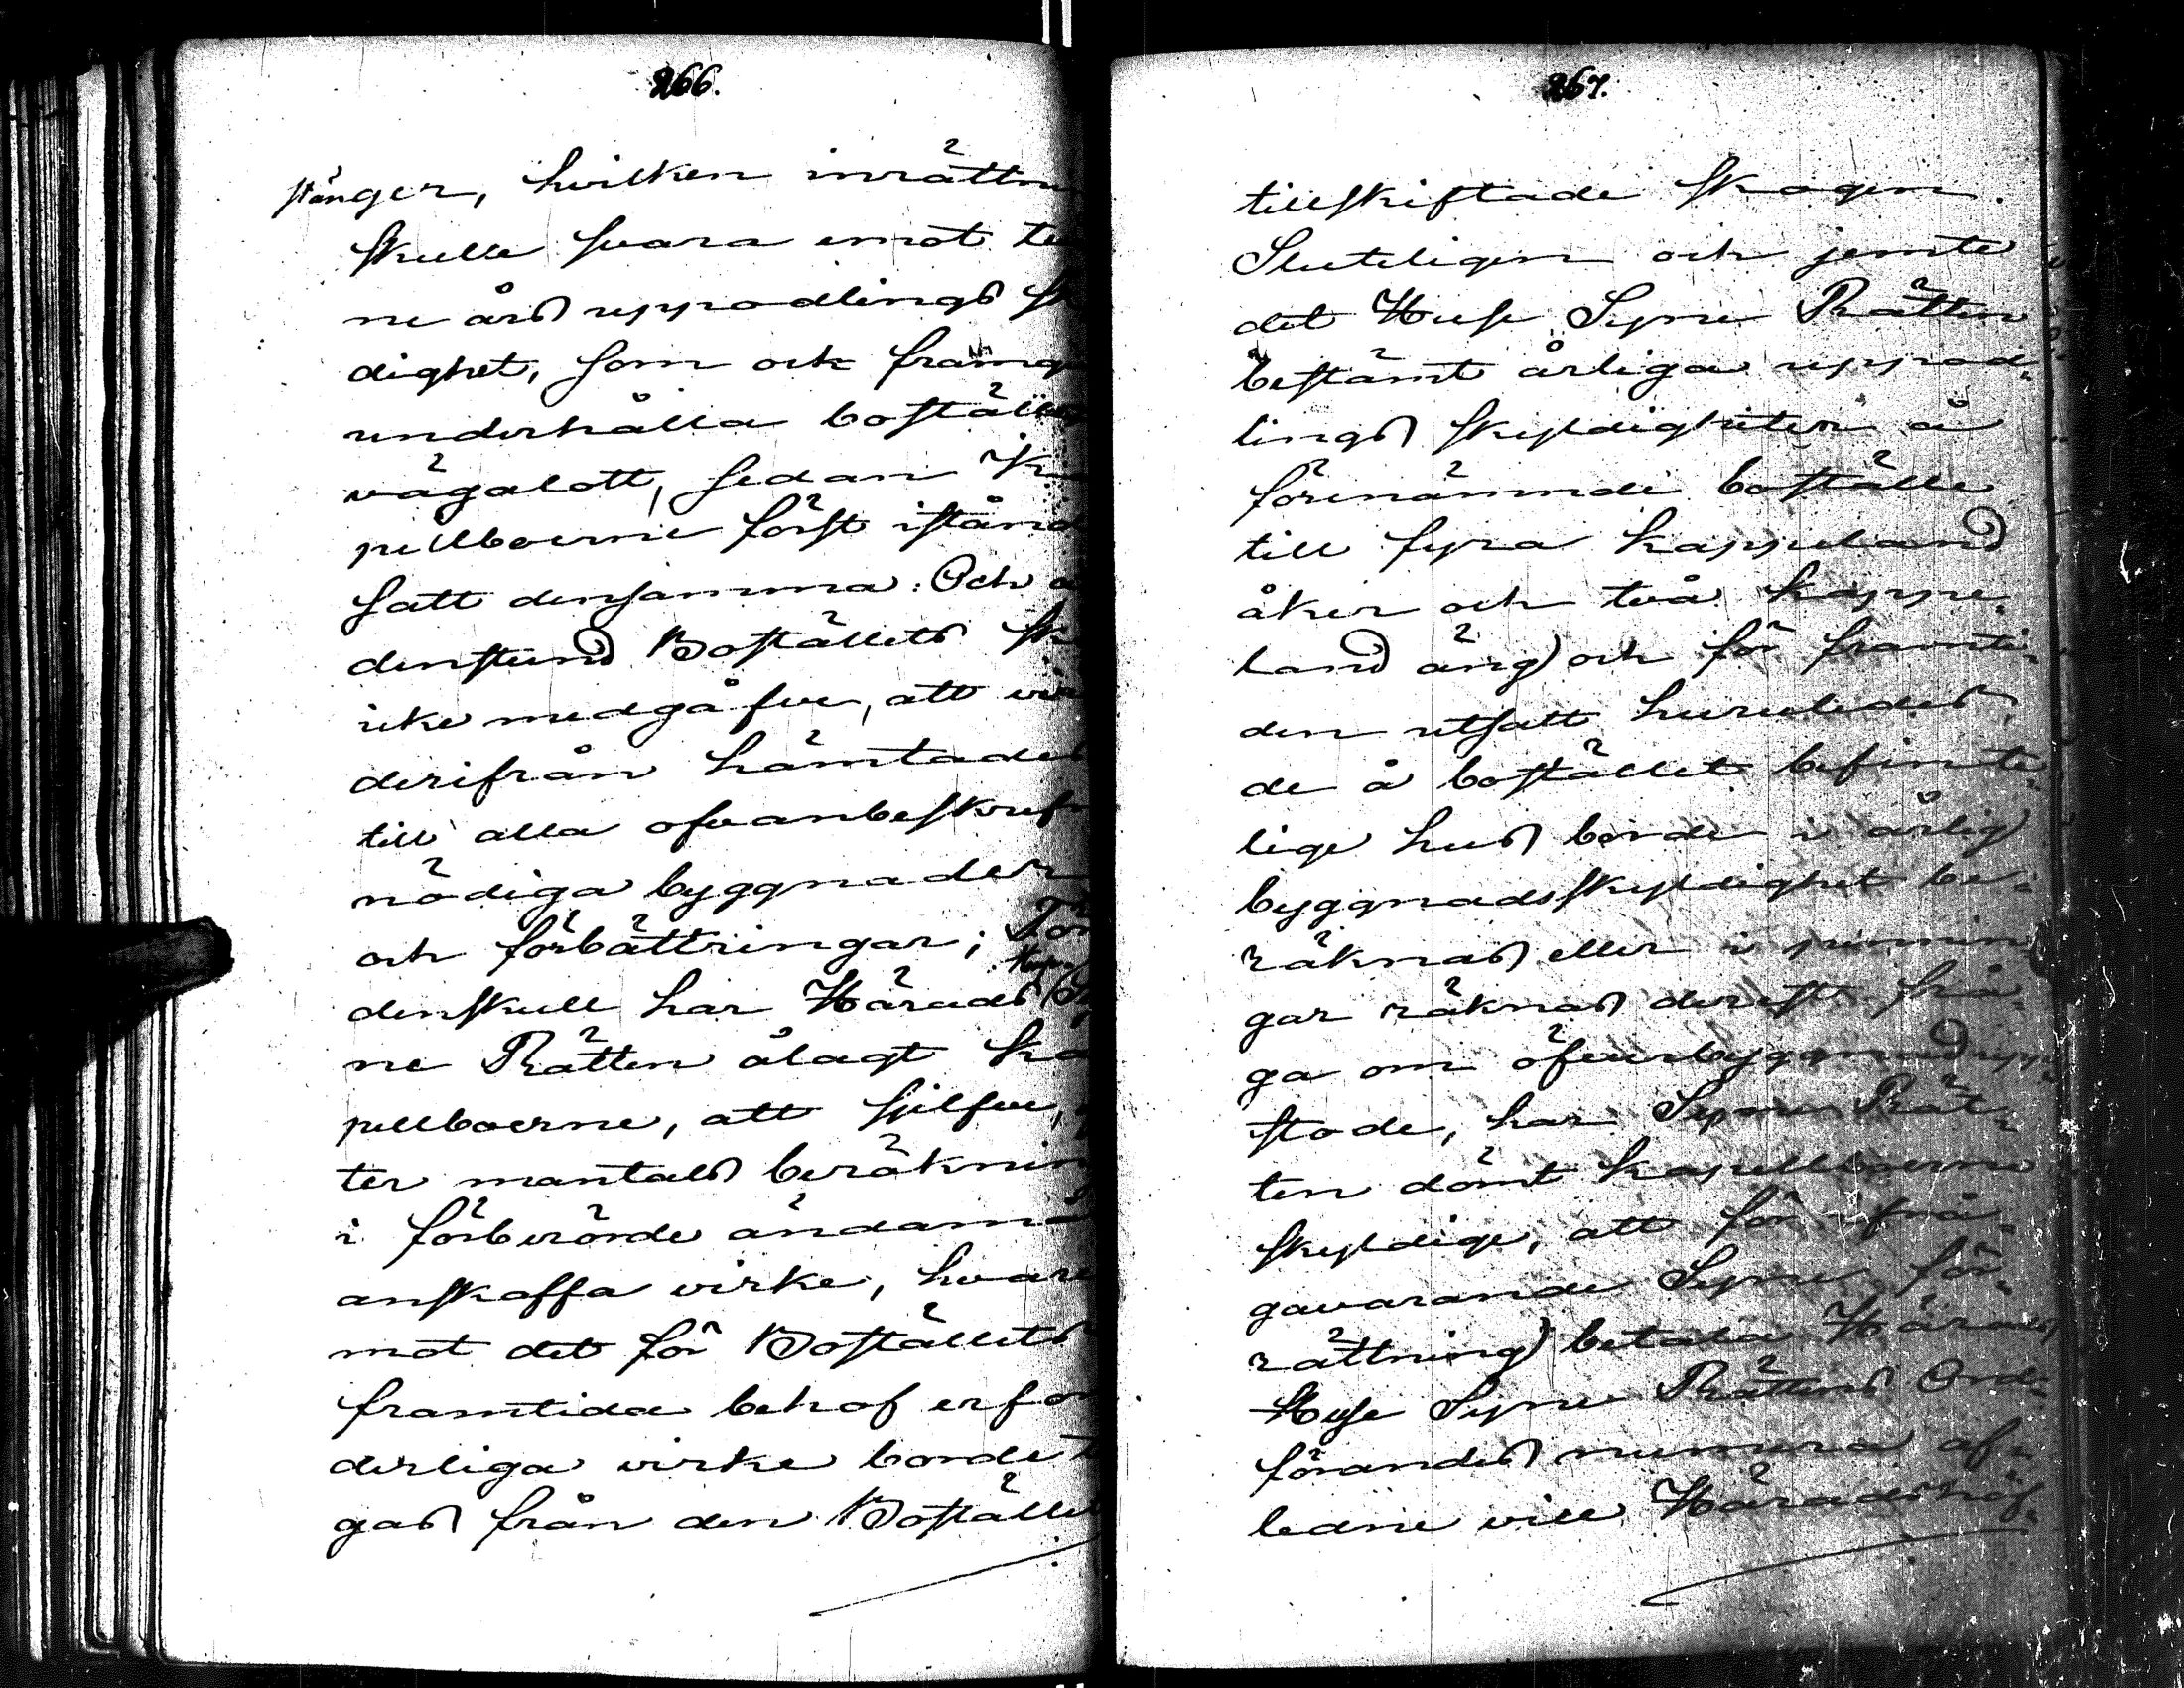 266.
stänger, hvilken inrättn
skulle svara emot
ne års uppodlings sk
dighet, som ock framg
underhålla boställe
vägalott, sedan K
pellboerne först istånd
satt densamma: Och a
denstund Boställets sk
icke medgåfve, att vir
derifrån hämtades
till alla ofvanbeskrefn
nödiga byggnader
och förbättringar; För
denskull har Härads Huse Sy
ne Rätten ålagt Ka
pellboerne, att sjelfve,
ter mantals beräknin
i förberörde ändamå
anskaffa virke, hvare
mot det för Boställets
framtida behof erfor
derliga virke borde t
gas från den Boställe
267.
tillskiftade skogen.
Sluteligen och jemte
det Huse Syne Rätten
bestämt årliga uppod-
lings skyldigheten å
förenämnde boställe
till fyra kappeland
åker och två kappe-
land äng och för framti-
den utsatt huruledes
de å bostället befinte-
lige hus borde i årlig
byggnadsskyldighet be-
räknas eller i pennin
gar räknas derest frå-
ga om öfverbyggnad upp-
stode, har Syne Rät-
ten dömt kapellboerne
skyldige, att för frå-
gavarande Syne för-
rättning betala Härads
Huse Syne Rättens Ord-
förandes numera af-
ledne vice Häradshöf-